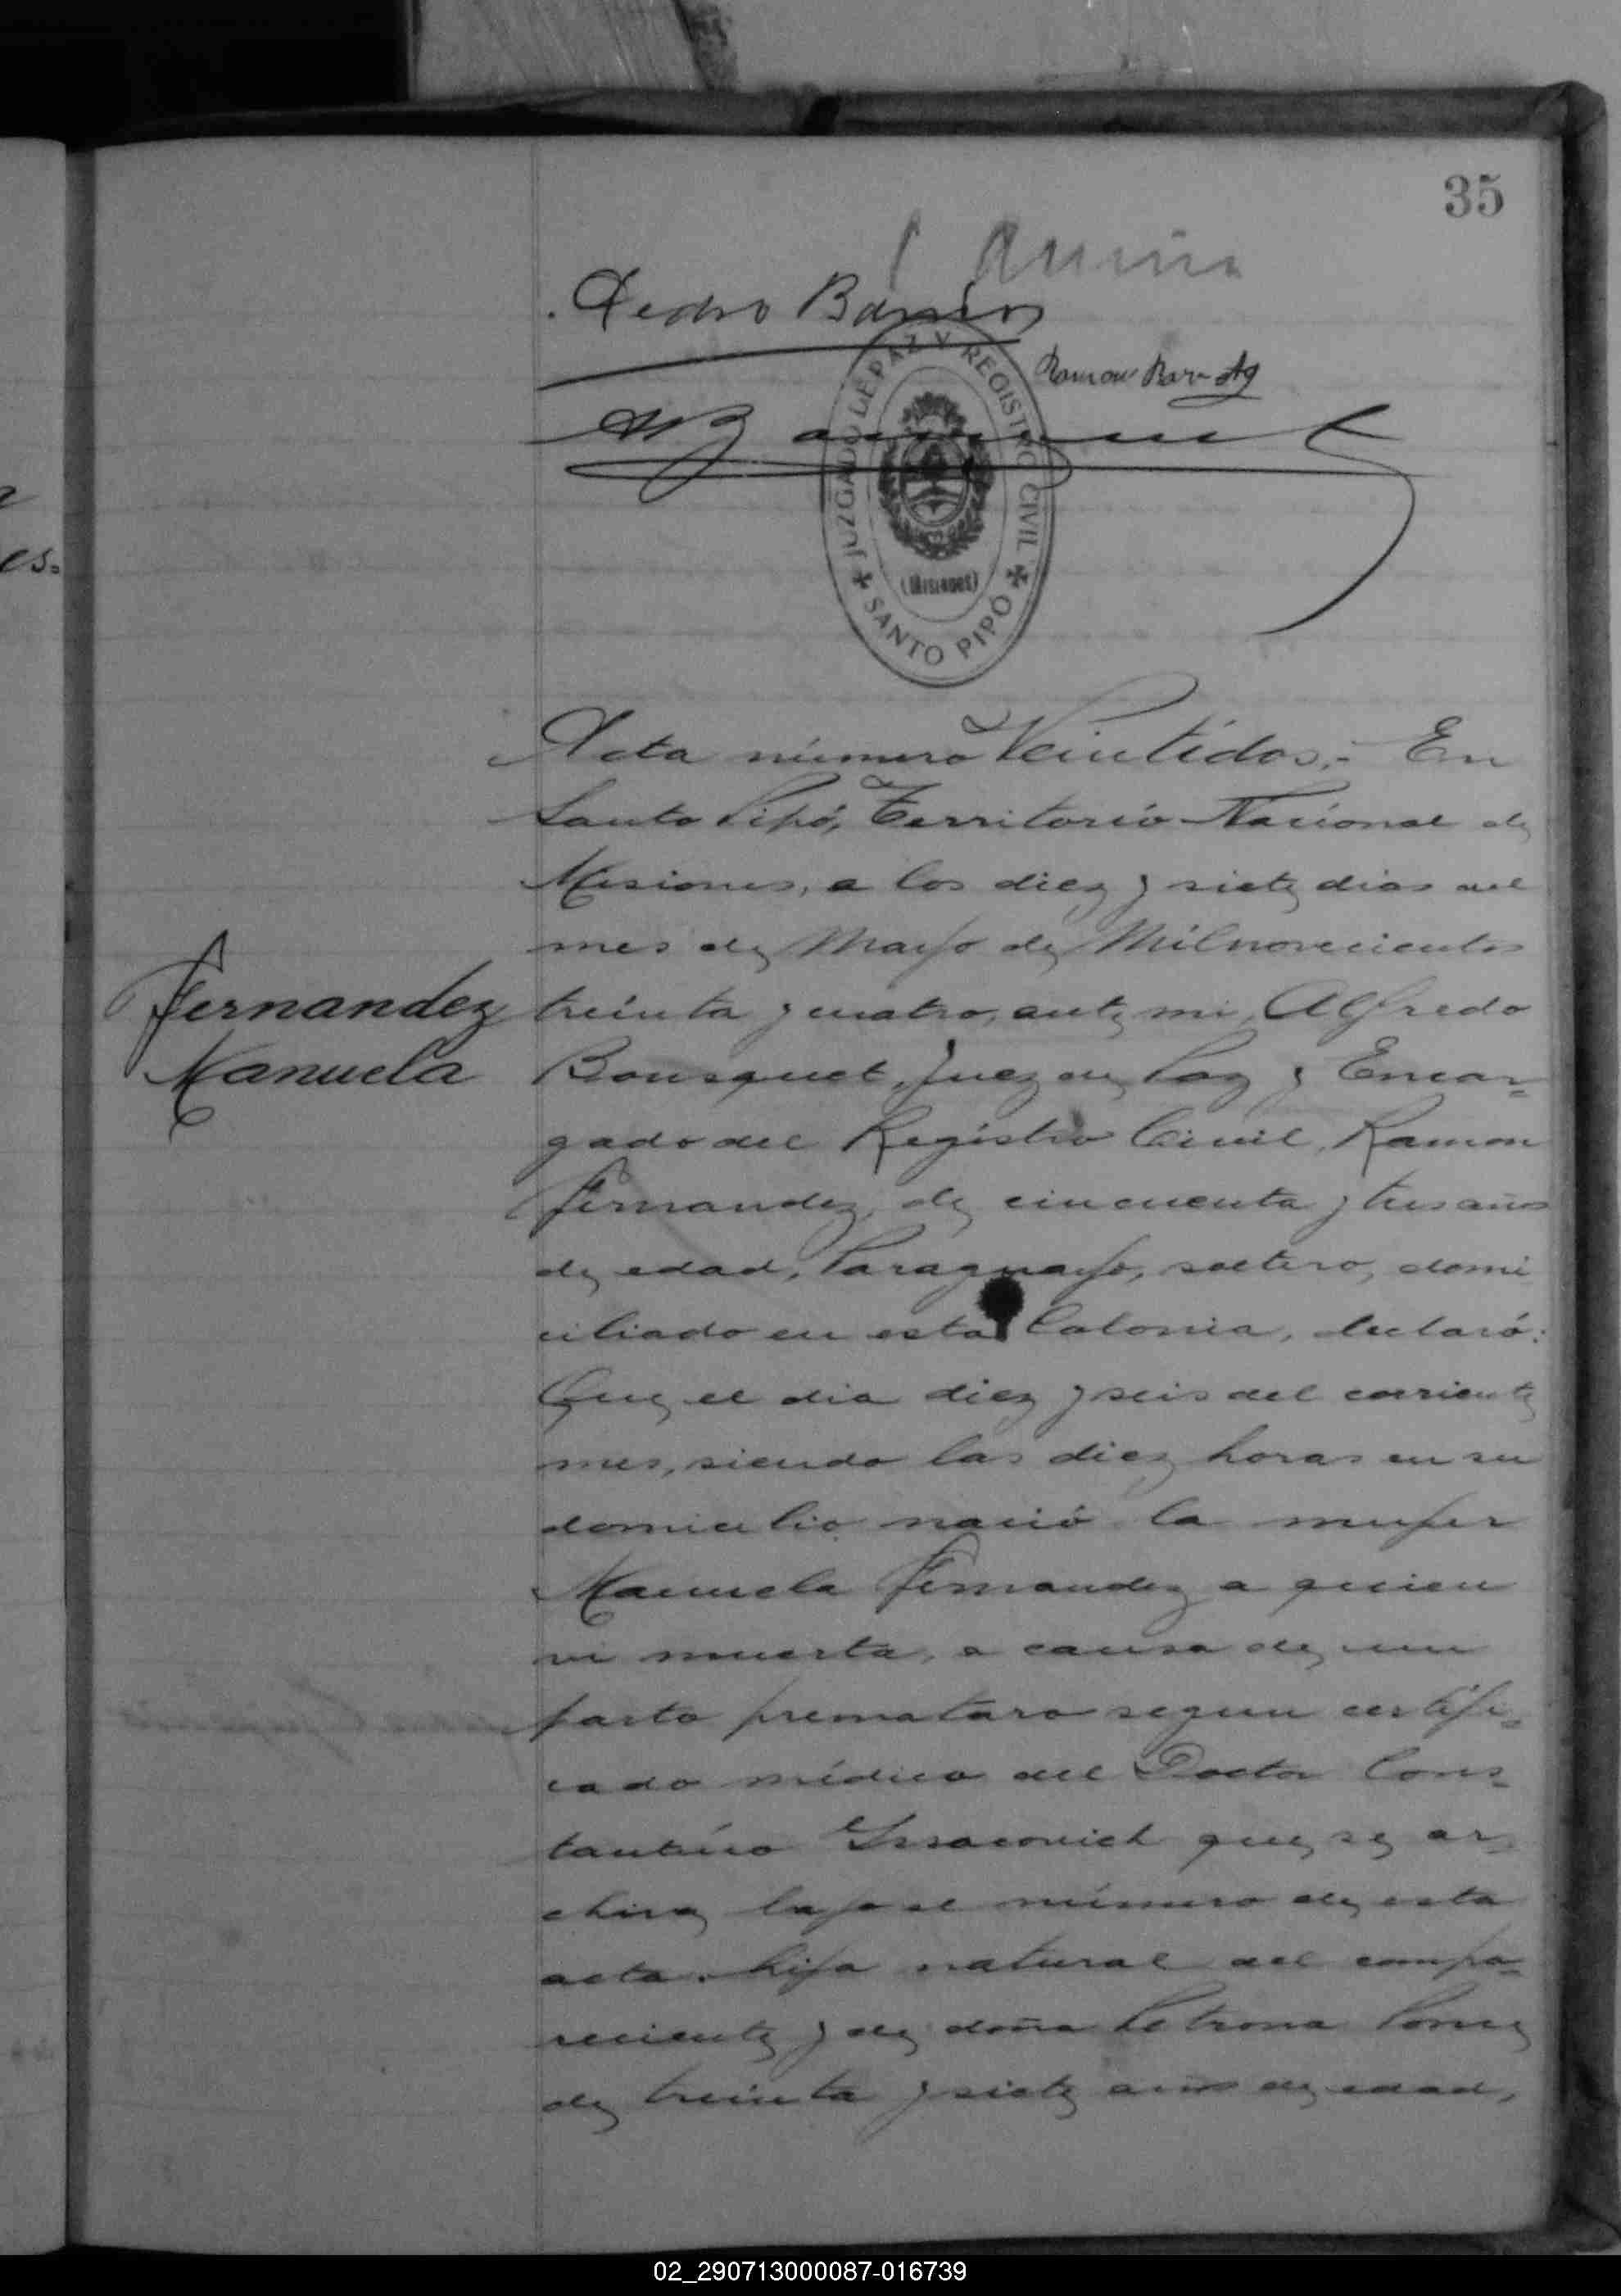 35
Pedro Barrios
JUZGADO DE PAZ Y REGISTRO CIVIL
(MISIONES)
SANTO PIPÓ
Acta número Veintidos.- En
Santo Pipó, Territorio Nacional de
Misiones, a los diez y siete dias del
mes de Mayo de Milnovecientos
Fernandez
Manuela
treinta y cuatro, ante mi, Alfredo
Bousquet, Juez de Paz y Encar=
gado del Registro Civil, Ramon
Fernandez, de cincuenta y tres años
de edad, Paraguayo, soltero, domi
ciliado en esta Colonia, declaró:
Que el dia diez y seis del corriente
mes, siendo las diez horas en su
domicilio nació la mujer
Manuela Fernandez a quien
vi muerta, a causa de un
parto prematuro segun certifi=
cado médico del Doctor Cons=
tantino Issacovich que se ar=
chiva bajo el número de esta
acta. hija natural del compa=
reciente y de doña Petrona
de treinta y siete años de edad,
02_290713000087-016739